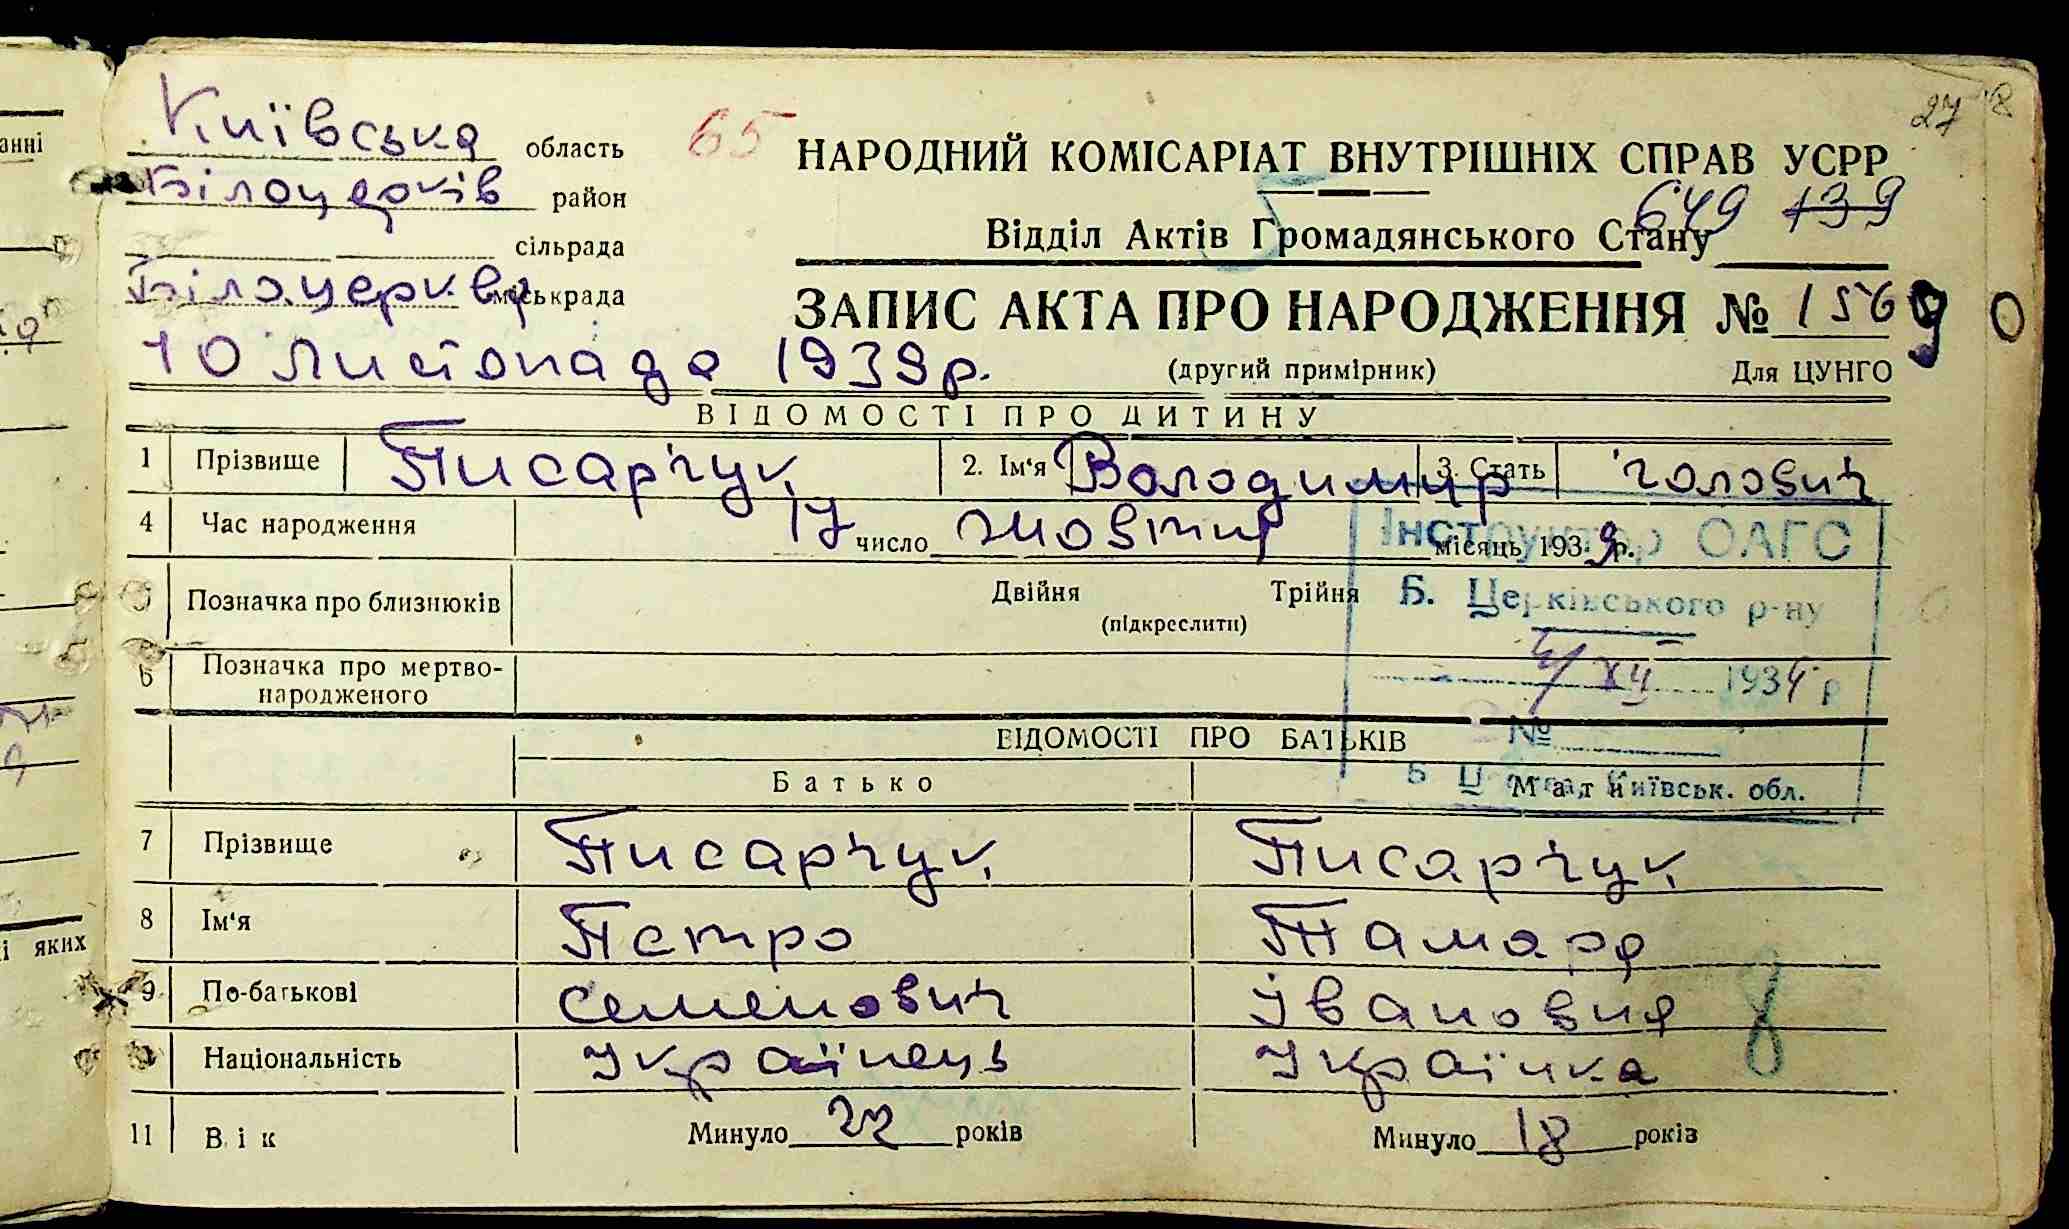 27
Київська область
65
НАРОДНИЙ КОМІСАРІАТ ВНУТРІШНІХ СПРАВ УСРР
Білоцерків район
649 139
сільрада
Відділ Актів Громадянського Стану
Білоцеркв міськрада
ЗАПИС АКТА ПРО НАРОДЖЕННЯ № 156
10 листопада 1939р.
(другий примірник) Для ЦУНГО
ВІДОМОСТІ ПРО ДИТИНУ
1 Прізвище Писарчук 2. Ім'я Володимир 3. Стать чоловіч
4 Час народження 17 число жовтня місяць 1939р.
Інструктор ОАГС
5 Позначка про близнюків Двійня Трійня
(підкреслити)
Б. Церківського р-ну
6 Позначка про мертво-
народженого
XII 193 р
№
ВІДОМОСТІ ПРО БАТЬКІВ
Батько Мати
Київськ. обл.
7 Прізвище Писарчук Писарчук
8 Ім'я Петро Тамара
9 По-батькові Семенович Івановна
Національність Українець Українка
8
11 Вік Минуло 22 років Минуло 18 років
анні
і яких